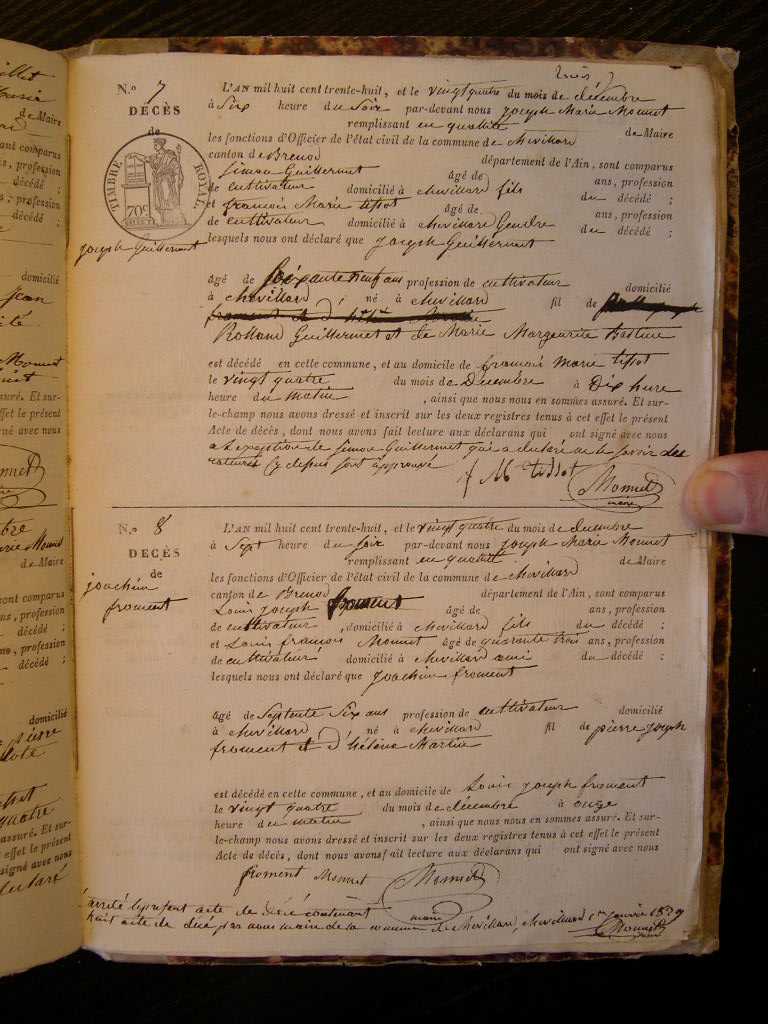 N.º 7
DÉCÈS
de
TIMBRE ROYAL
70 C
joseph Guillermet
L'AN mil huit cent trente-huit, et le vingt quatre du mois de décembre
à Six heure du Soir par-devant nous joseph Marie Monnet
remplissant en qualité de Maire
les fonctions d'Officier de l'état civil de la commune de chevillard
canton de Brenod département de l'Ain, sont comparus
Simon Guillermet âgé de ans, profession
de cultivateur domicilié à chevillard fils du décédé ;
et francois Marie tissot âgé de ans, profession
de cultivateur domicilié à chevillard Gendre du décédé ;
lesquels nous ont déclaré que joseph Guillermet
âgé de soixante neuf ans profession de cultivateur domicilié
à chevillard ; né à chevillard fil de
Rolland Guillermet et de Marie Margueritte
est décédé en cette commune, et au domicile de francois marie tissot
le vingt quatre du mois de Décembre à Dix hure
heure du matin , ainsi que nous nous en sommes assuré. Et sur-
le-champ nous avons dressé et inscrit sur les deux registres tenus à cet effet le présent
Acte de décès, dont nous avons fait lecture aux déclarans qui ont signé avec nous
a l'exception de Simon Guillermet qui a declaré ne le savoir
ratures cy depus sont approuvé f M tissot Monnet
maire
N.º 8
DÉCÈS
de
joachim
froment
L'AN mil huit cent trente-huit, et le vingt quatre du mois de decembre
à Sept heure du soir par-devant nous joseph Marie Monnet
remplissant en qualité de Maire
les fonctions d'Officier de l'état civil de la commune de chevillard
canton de Brenod département de l'Ain, sont comparus
Louis joseph froment âgé de ans, profession
de cultivateur , domicilié à chevillard fils du décédé ;
et Louis francois Monnet âgé de quarante trois ans, profession
de cultivateur domicilié à chevillard ami du décédé ;
lesquels nous ont déclaré que joachim froment
âgé de Septente Six ans profession de cultivateur domicilié
à chevillard né à chevillard fil de pierre joseph
froment et d'hélène Martin
est décédé en cette commune, et au domicile de Louis joseph froment
le vingt quatre du mois de décembre à onze
heure du matin , ainsi que nous nous en sommes assuré. Et sur-
le-champ nous avons dressé et inscrit sur les deux registres tenus à cet effet le présent
Acte de décès, dont nous avons fait lecture aux déclarans qui ont signé avec nous
froment Monnet Monnet
maire
arrété le présent acte de décé contenant
huit acte de décé par nous maire de la commune de chevillard, chevillard 1er janvier 1839
Monnet
maire